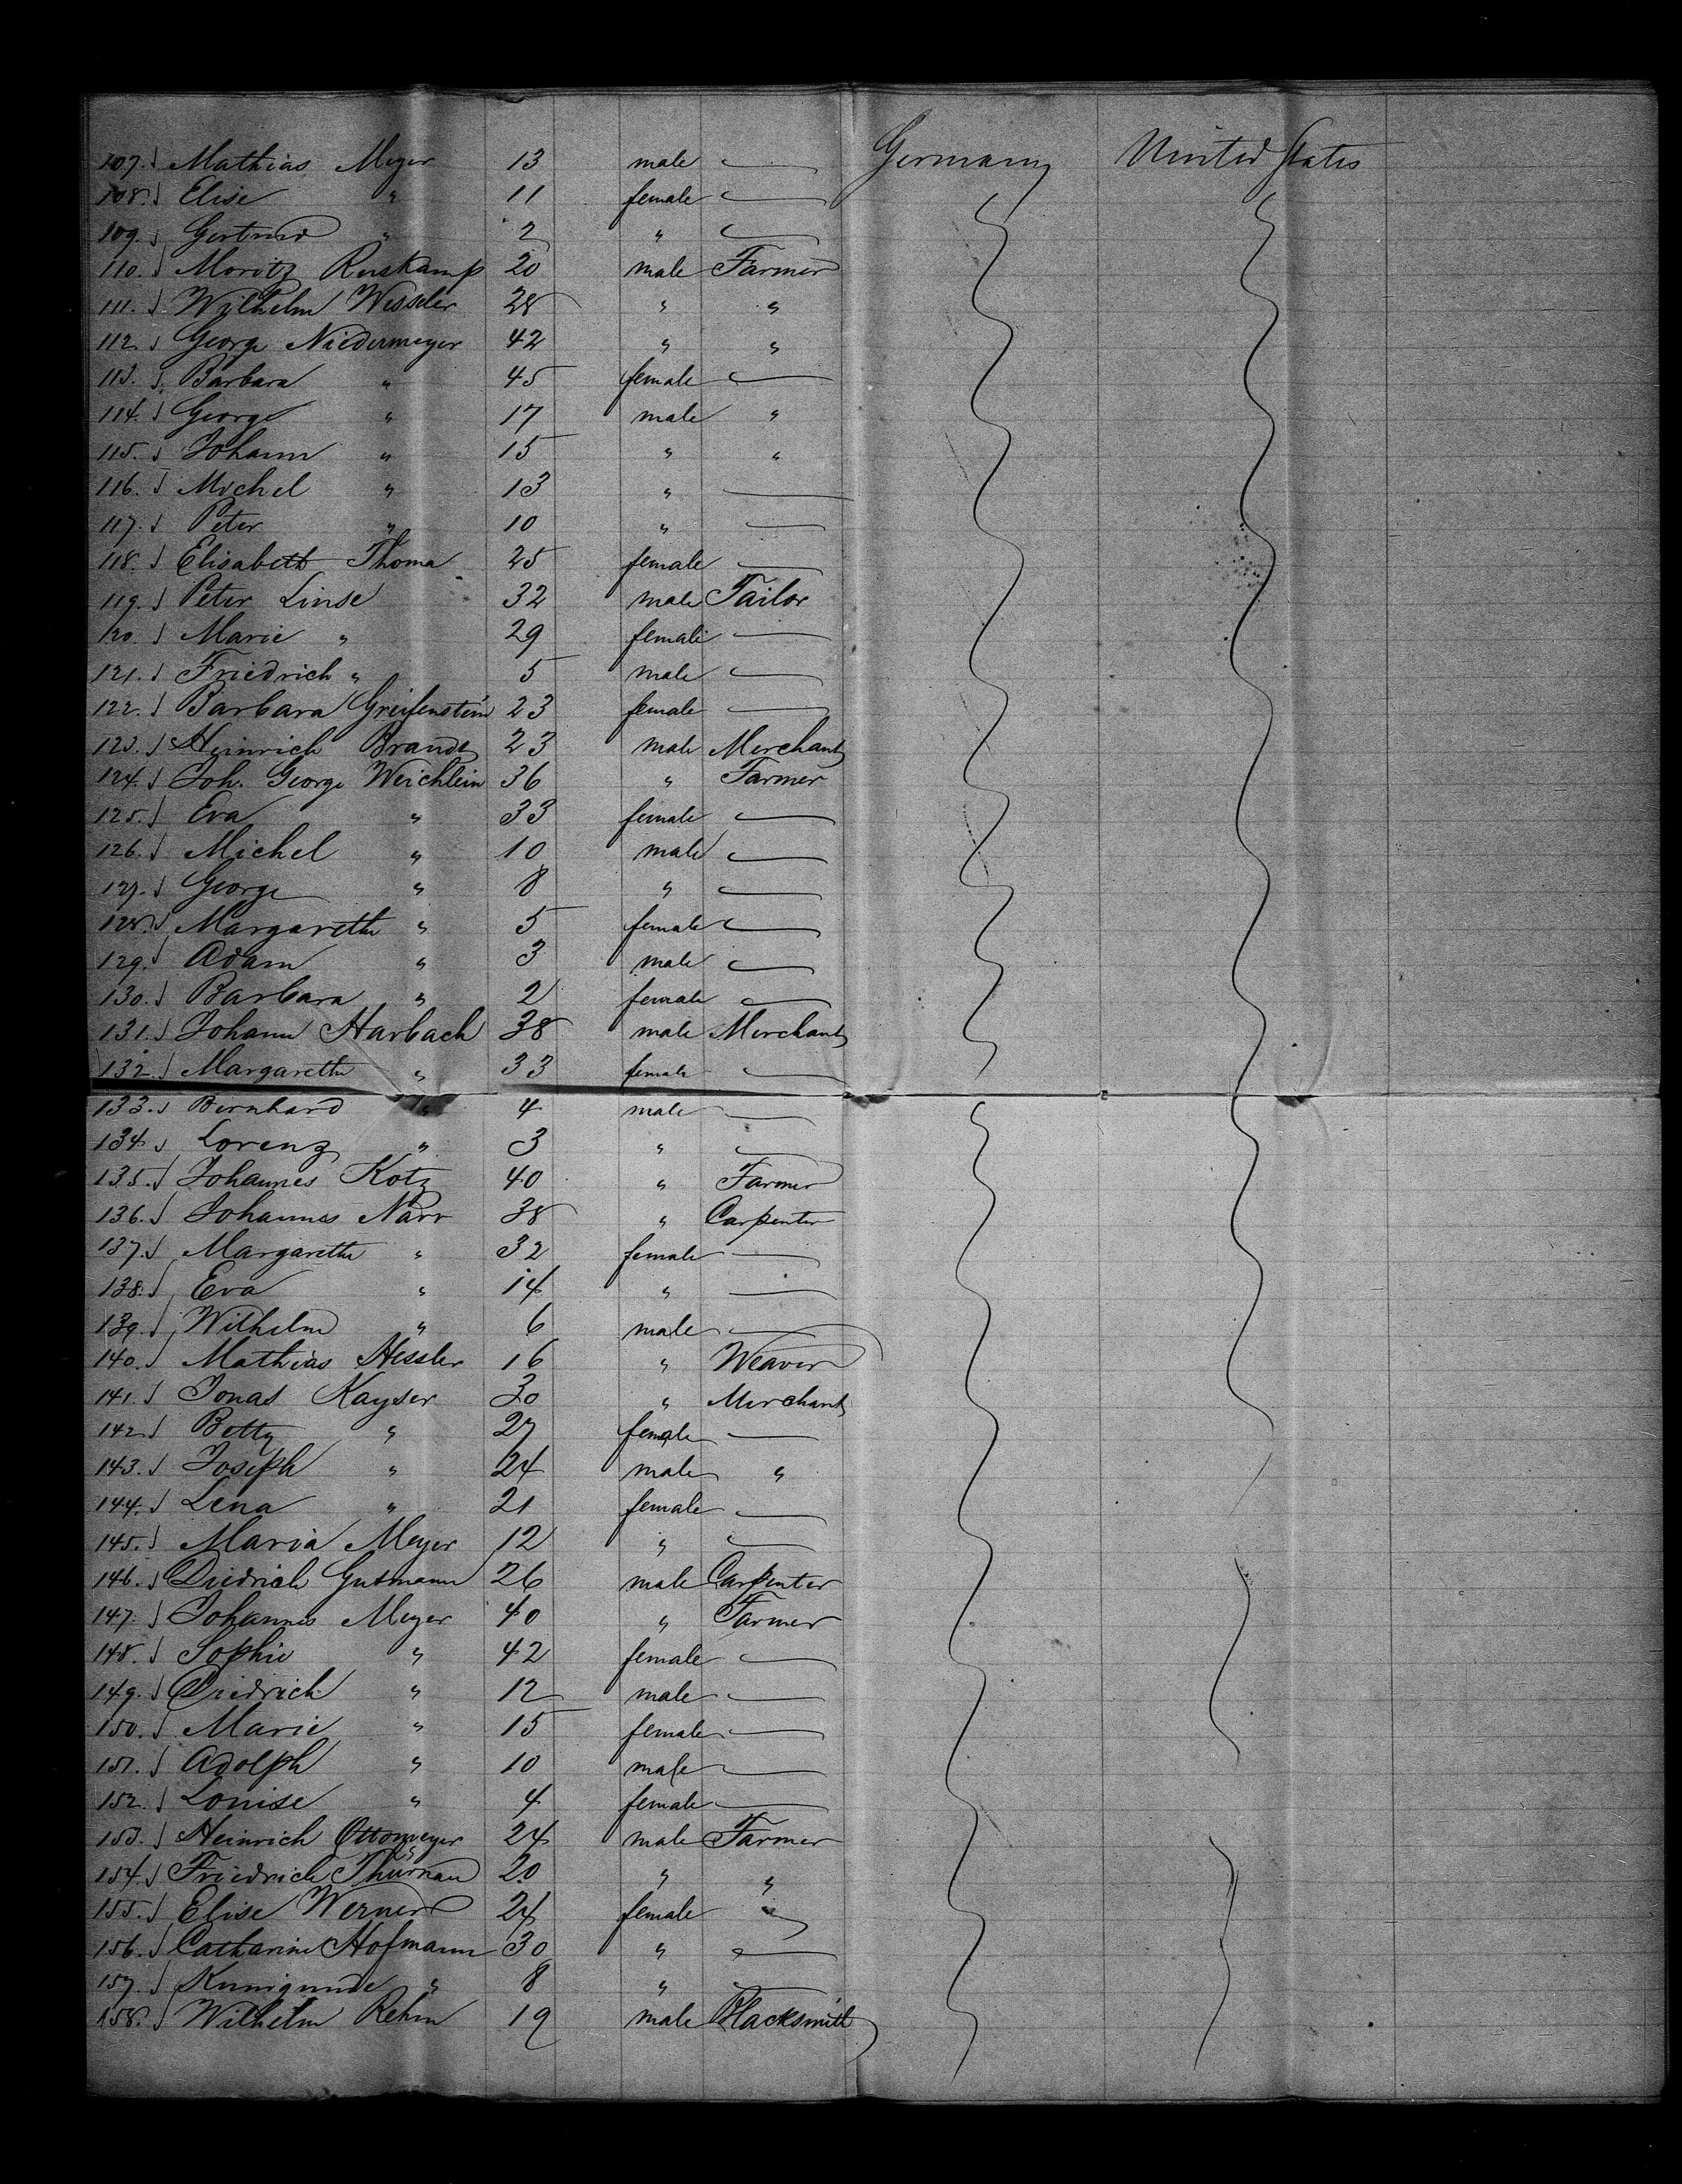 107. Mathias Meyer 13 male — Germany United States
108. Elise " 11 female —
109. Gertrud " 2 " —
110. Moritz Ruskamp 20 male Farmer
111. Wilhelm Wessler 28 " "
112. George Niedermeyer 42 " "
113. Barbara " 45 female —
114. George " 17 male "
115. Johann " 15 " "
116. Michel " 13 " —
117. Peter " 10 " —
118. Elisabeth Thoma 25 female —
119. Peter Linse 32 male Tailor
120. Marie " 29 female —
121. Friedrich " 5 male —
122. Barbara Greifenstein 23 female —
123. Heinrich Brandt 23 male Merchant
124. Joh. George Weichlein 36 " Farmer
125. Eva " 33 female —
126. Michel " 10 male —
127. George " 8 " —
128. Margareth " 5 female —
129. Adam " 3 male —
130. Barbara " 2 female —
131. Johann Harbach 38 male Merchant
132. Margareth " 33 female —
133. Bernhard " 4 male —
134. Lorenz " 3 " —
135. Johannes Kotz 40 " Farmer
136. Johannes Narr 38 " Carpenter
137. Margareth " 32 female —
138. Eva " 14 " —
139. Wilhelm " 6 male —
140. Mathias Hessler 16 " Weaver
141. Jonas Kayser 30 " Merchant
142. Betty " 27 female —
143. Joseph " 24 male "
144. Lena " 21 female —
145. Maria Meyer 12 " —
146. Diedrich Gutmann 26 male Carpenter
147. Johannes Meyer 40 " Farmer
148. Sophie " 42 female —
149. Diedrich " 12 male —
150. Marie " 15 female —
151. Adolph " 10 male —
152. Louise " 4 female —
153. Heinrich Ottomeyer 24 male Farmer
154. Friedrich Thurnau 20 " "
155. Elise Werner 24 female —
156. Catharine Hofmann 30 " —
157. Kunigunde " 8 " —
158. Wilhelm Rehm 19 male Blacksmith